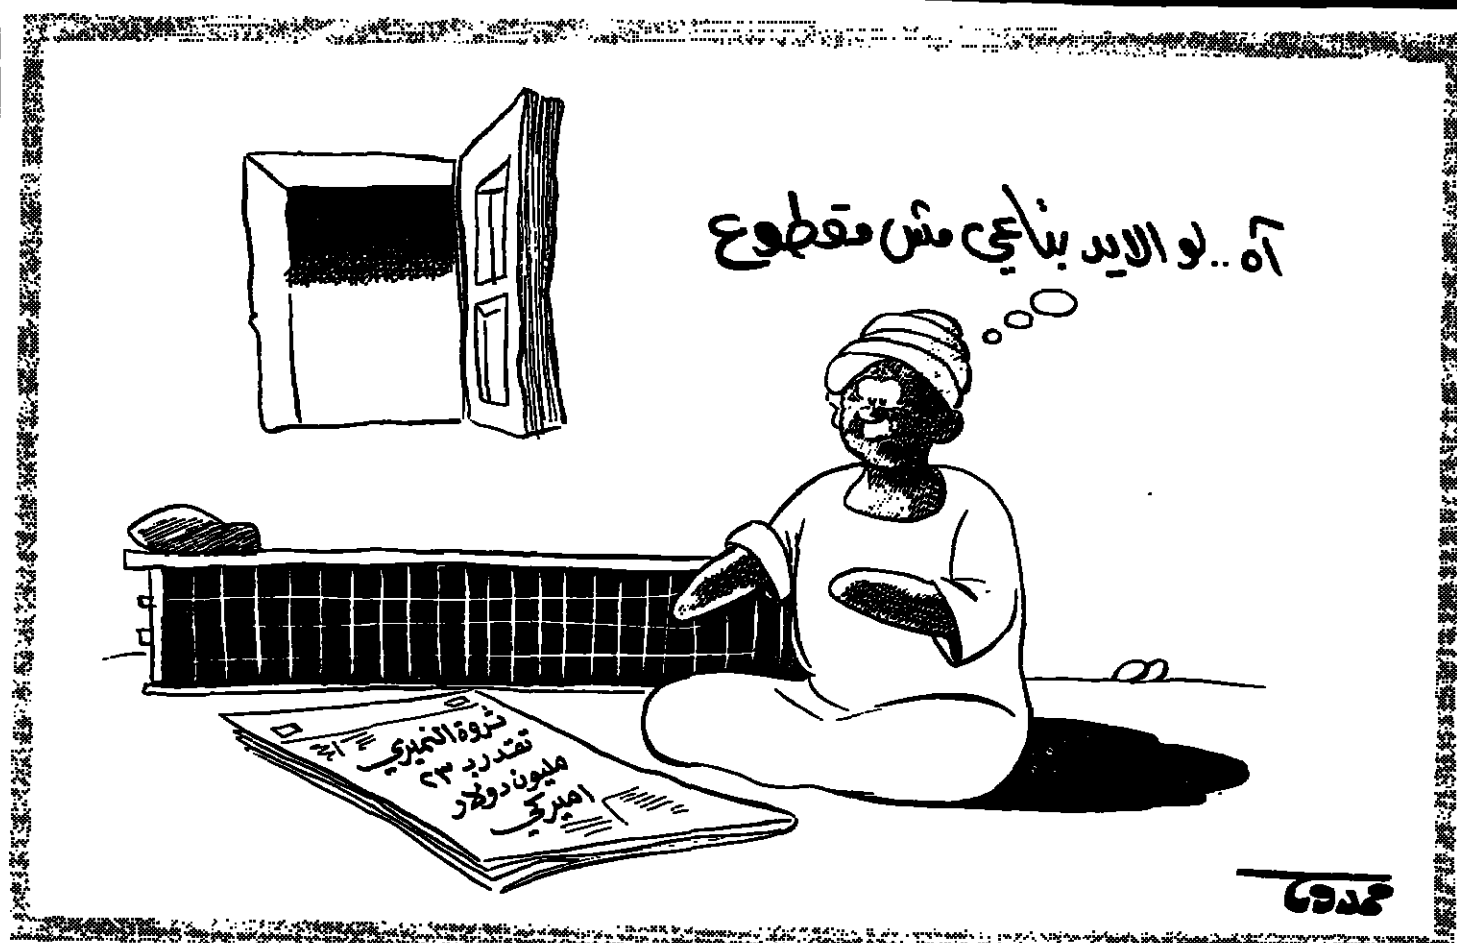 آه .. لو الايد بتاعي مش مقطوع
ثروة النميري
تقدر بـ ٢٣
مليون دولار
اميركي